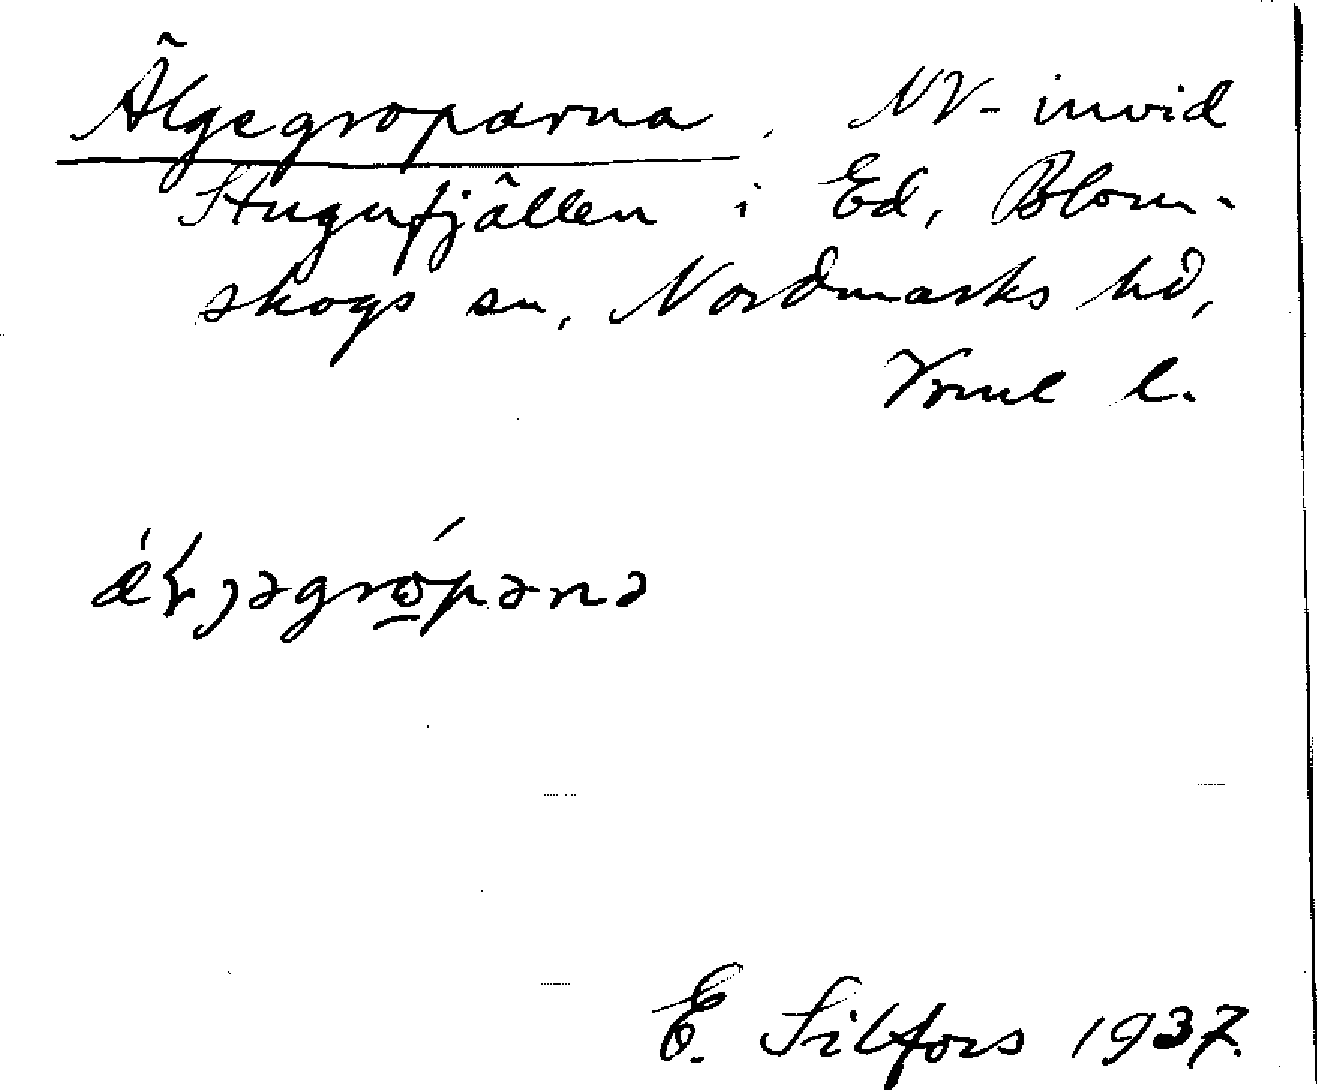 Älgegroparna. NV-invid
Stugufjällen i Ed, Blom-
skogs sn, Nordmarks hd,
Vrml l.
E. Silfors 1937.